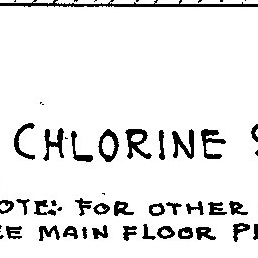 CHLORINE
OTE: FOR OTHER
EE MAIN FLOOR